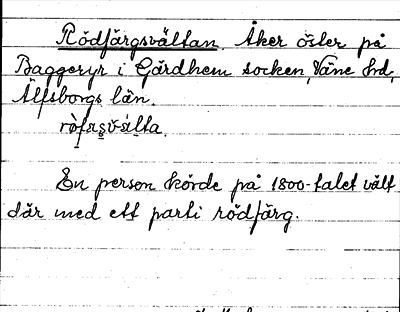 Rödfärgsvältan. Åker öster på
Baggeryr i Gärdhem socken, Väne hd,
Älfsborgs län.
En person körde på 1800-talet vält
där med ett parti rödfärg.